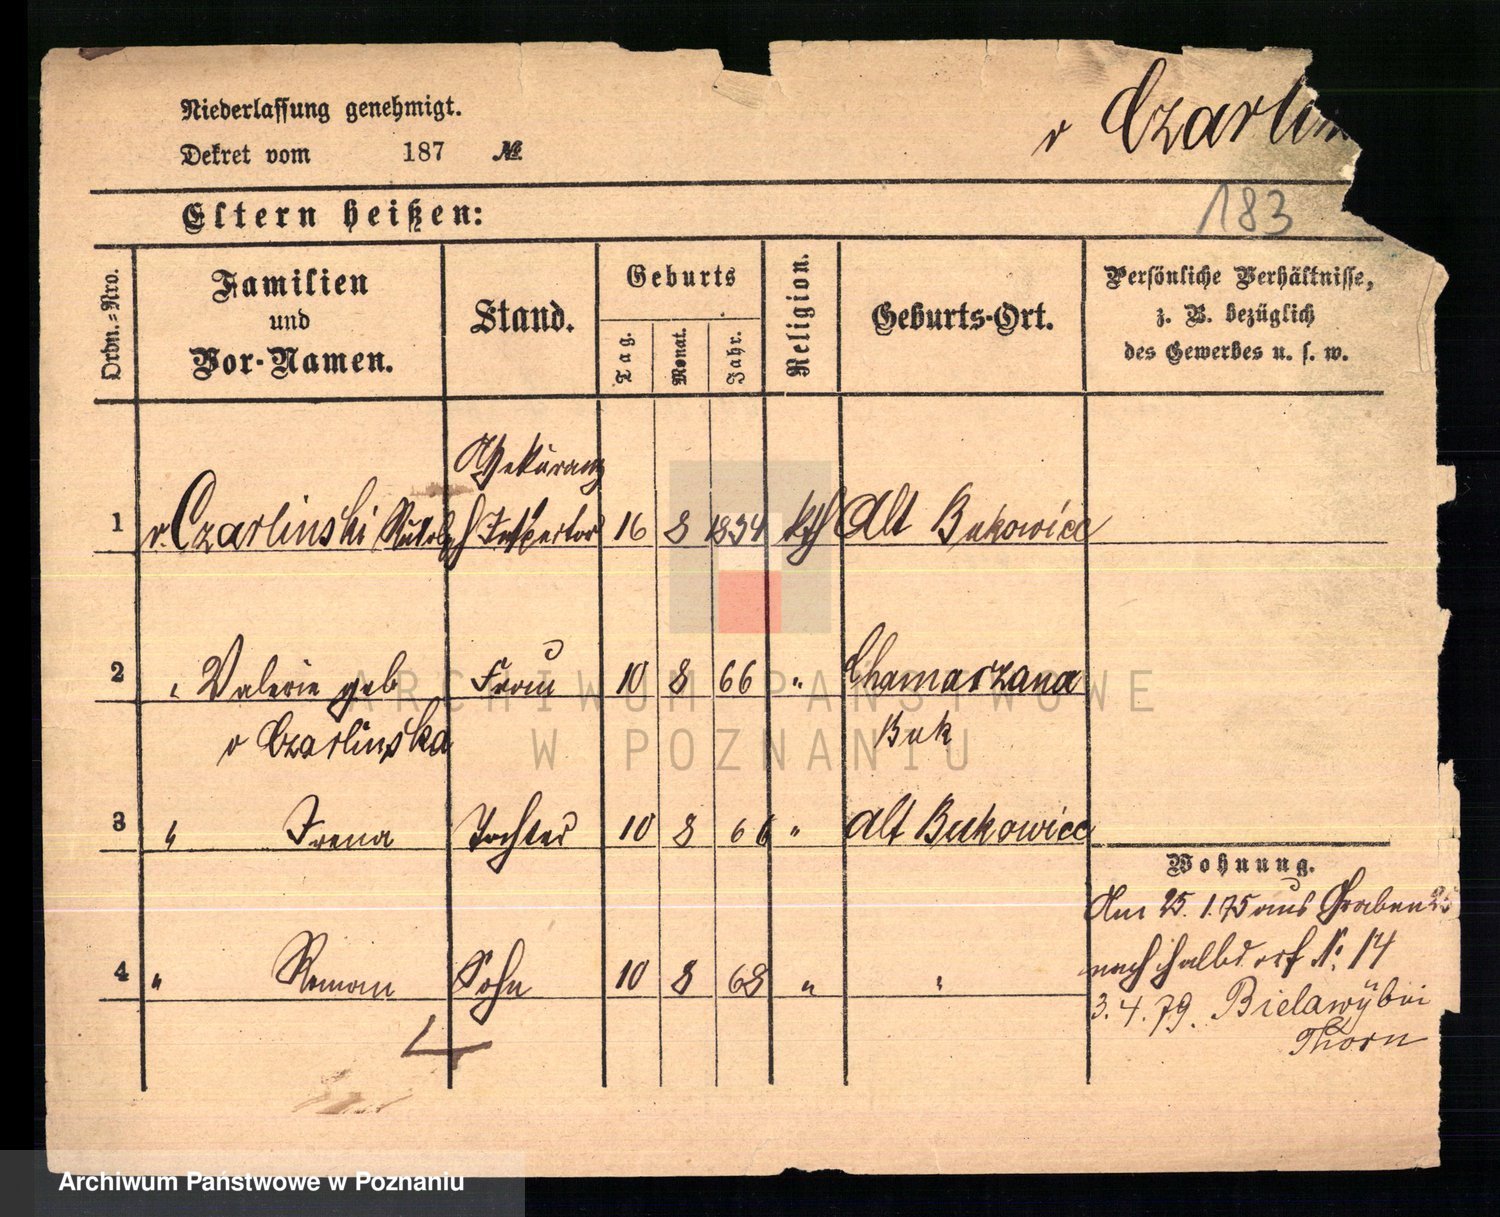 v Czarlin
Niederlassung genehmigt.
Dekret vom 187 №
183
Eltern heißen:
Ordn.=Nro.
Familien
und
Vor-Namen.
Stand.
Geburts
Tag.
Monat.
Jahr.
Religion.
Geburts-Ort.
Persönliche Verhältnisse,
z. B. bezüglich
des Gewerbes u. s. w.
Assekuranz
1 v. Czarlinski Rudolph Inspektor 16 8 1834 kth Alt Bukowice
2 " Valerie geb Frau 10 8 66 " Chamarzana
v Czarlinska Buk
3 " Irena Tochter 10 8 66 " Alt Bukowice
Wohnung.
Am 25. 1. 75 aus Graben 25
4 " Roman Sohn 10 8 68 " "
nach Halbdorf № 14
3. 4. 79. Bielawy bei
Thorn
4
ARCHIWUM PAŃSTWOWE
W POZNANIU
Archiwum Państwowe w Poznaniu